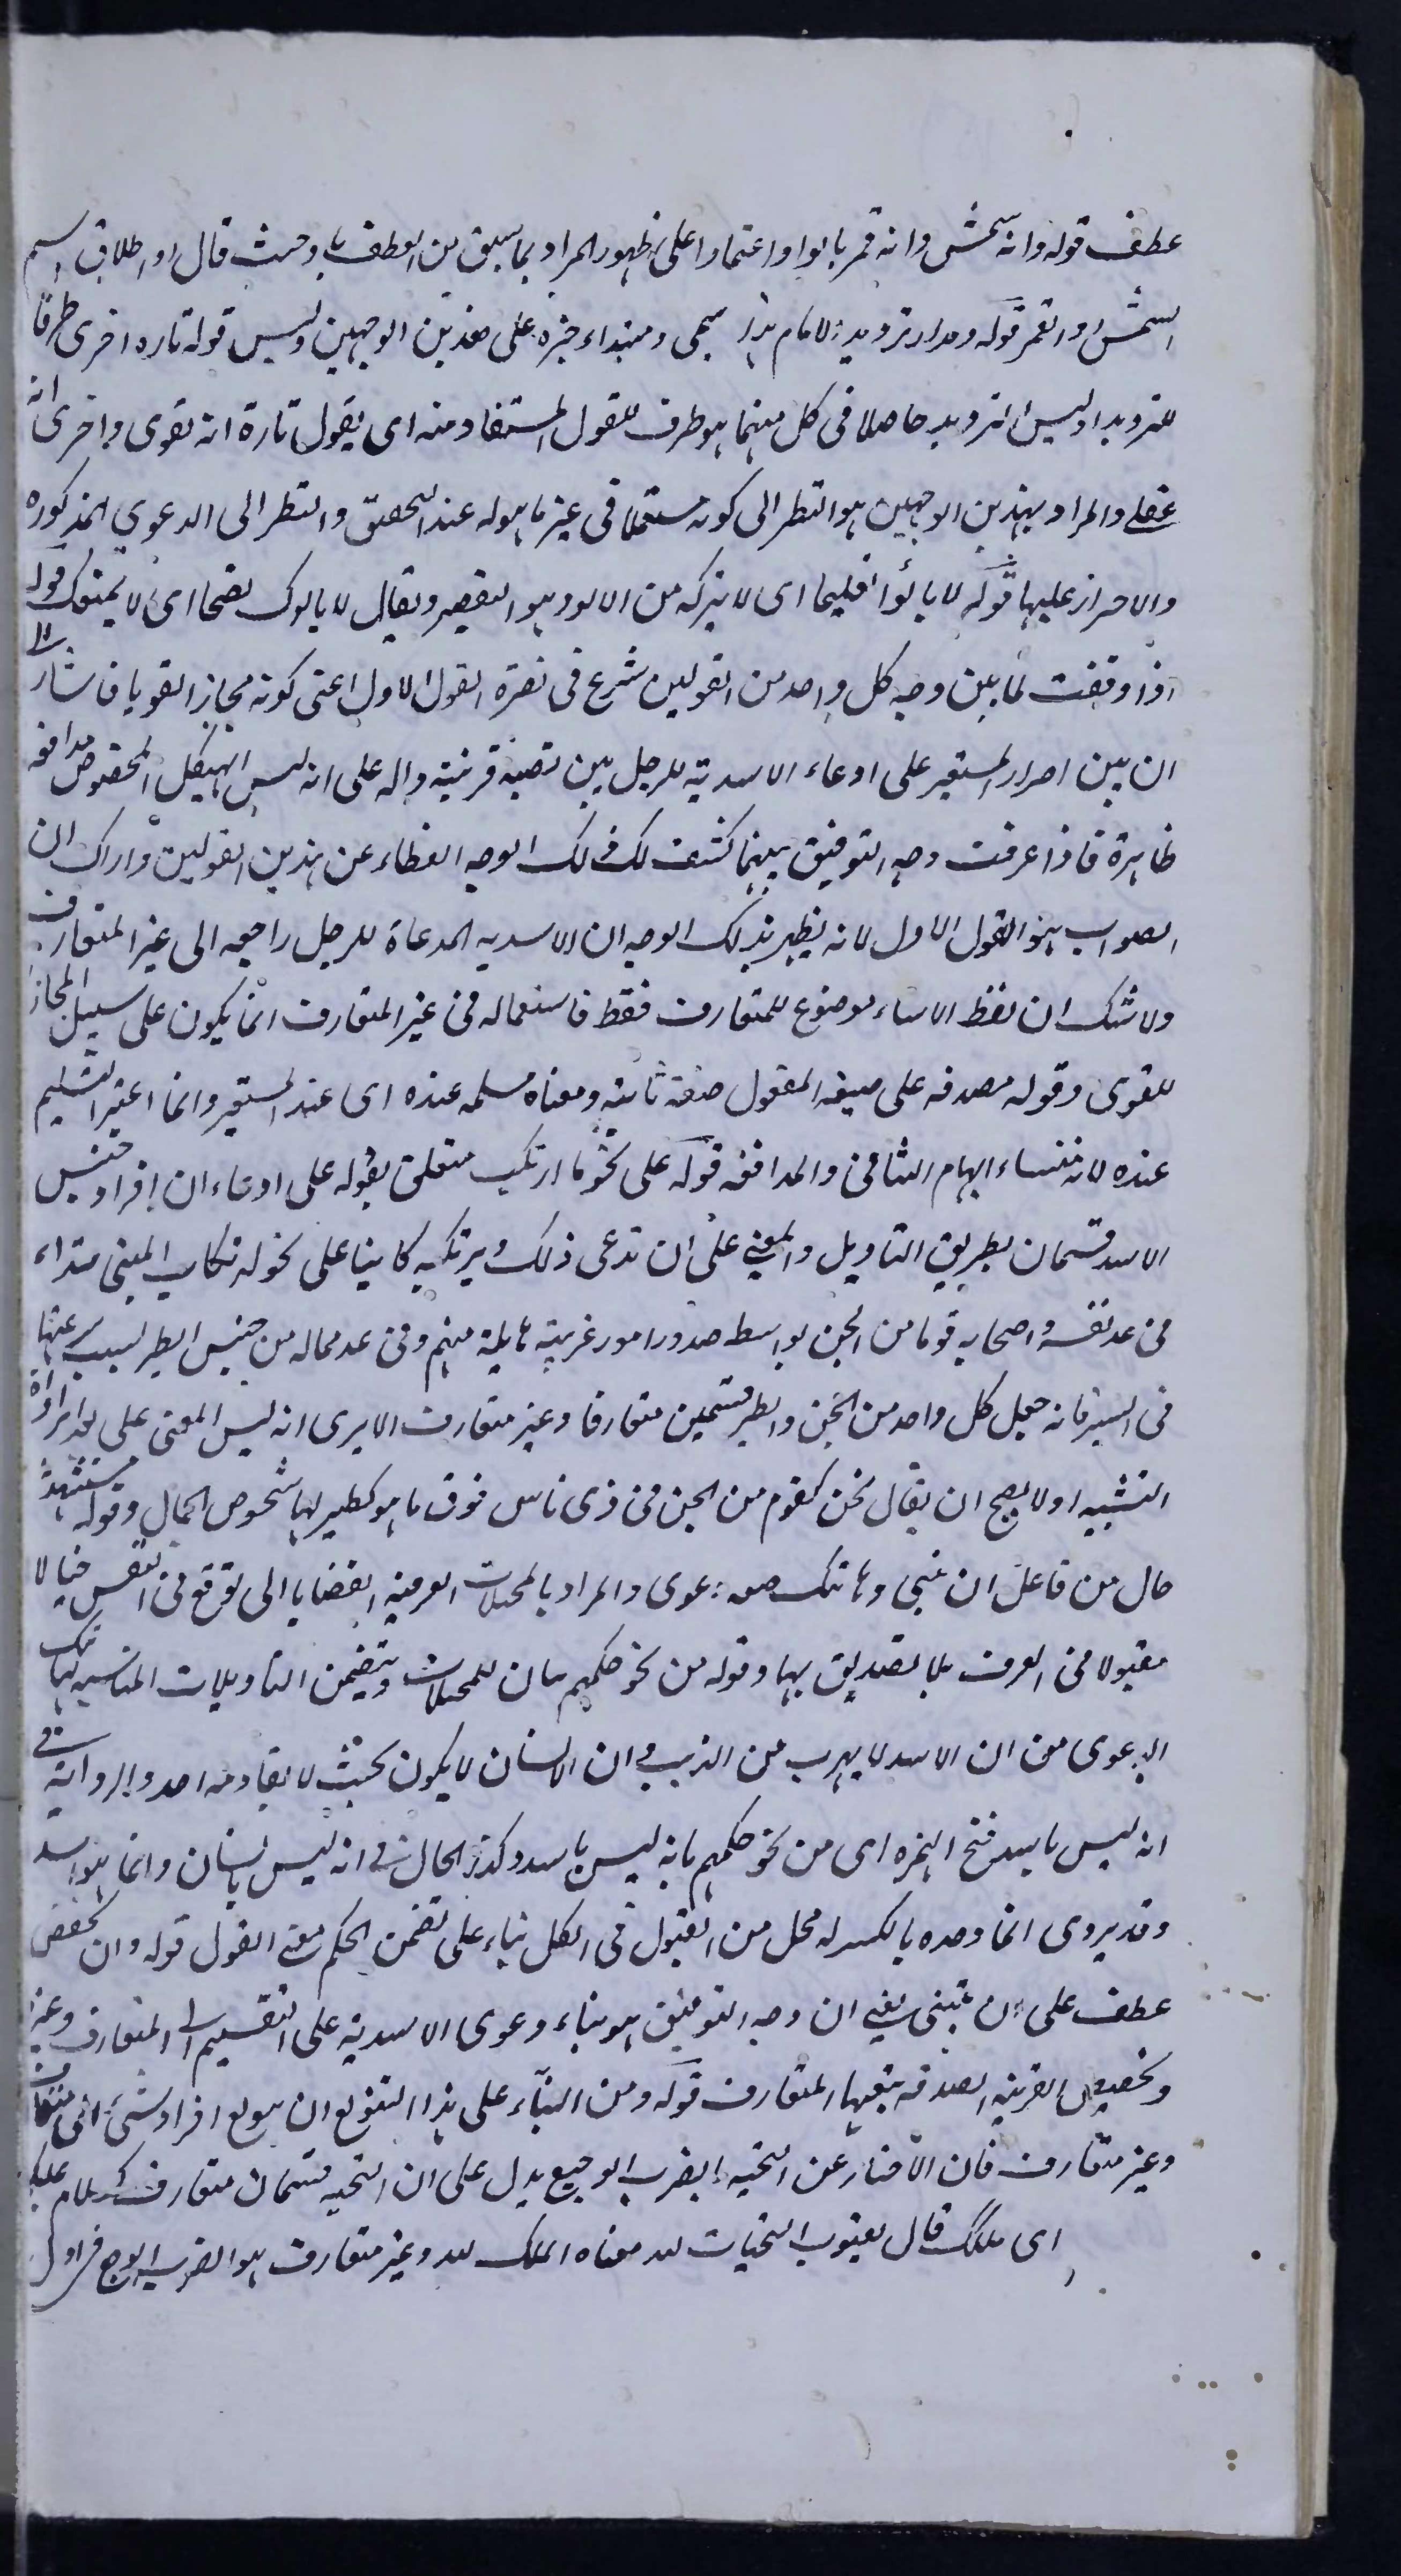 عطف قوله وانه شمس وانه قمر بالواو اعتمادا على ظهور المراد بما سبق من العطف باو حيث قال او اطلاق اسم
الشمس او القمر قوله ومدار ترديد الامام هذا سمى ومبتداء خبره على هذين الوجهين وليس قوله تاره اخرى ظرفا
للترديد اذ ليس الترديد حاصلا فى كل منهما بل هو ظرف للقول المستفاد منه اى يقول تارة انه لغوى واخرى انه
عقلى والمراد بهذين الوجهين هو النظر الى كونه مستعملا فى غير ما هو له عند التحقيق والنظر الى الدعوى المذكوره
والاصرار عليها قوله لا يالوا تفليحا اى لا يتركه من الالو وهو التقصير ويقال لا يالوك نصحا اى لا يمنعك قوله
اذا وقفت لما بين وجه كل واحد من القولين شرع فى نصرة القول الاول اعنى كونه مجازا لغويا فاشار الى
ان بين اصرار المستعير على ادعاء الاسدية للرجل وبين نصبه قرينة داله على انه ليس الهيكل المخصوص مدافعه
ظاهرة فاذا عرفت وجه التوفيق بينهما كشف لك ذلك الوجه الغطاء عن هذين القولين واراك ان
الصواب هو القول الاول لانه يظهر بذلك الوجه ان الاسديه المدعاة للرجل راجعه الى غير المتعارف
ولا شك ان لفظ الاسد موضوع للمتعارف فقط فاستعماله فى غير المتعارف انما يكون على سبيل المجاز
اللغوى وقوله مصدقه على صيغه المفعول صفة ثانيه ومعناه مسلمه عنده اى عند المستعير وانما اعتبر التسليم
عنده لانه منشاء ايهام التنافى والمدافعه قوله على نحو ما ارتكب متعلق بقوله على ادعاء ان افراد جنس
الاسد قسمان بطريق التاويل والمعنى على ان تدعى ذلك ويرتكبه كاينا على نحو ارتكاب المتنبى مبتداء
فى عد نفسه واصحابه قوما من الجن بواسطه صدور امور غريبة هايلة منهم وفى عد جماله من جنس الطير لسبب سرعتها
فى السير فانه جعل كل واحد من الجن والطير قسمين متعارفا وغير متعارف الا يرى انه ليس المعنى على ارادة اداة
التشبيه اذ لا يصح ان يقال نحن كقوم من الجن فى زى ناس فوق ما هو كطير لها شخوص الجمال وقوله مستشهدا
حال من فاعل ان تبنى وهاتيك صفه دعوى والمراد بالمخيلات العرفيه القضايا التى توقع فى النفس خيالا
مقبولا فى العرف بلا تصديق بها وقوله من نحو حكمهم بيان للمخيلات ويتضمن التاويلات المناسبه لهاتيك
الدعوى من ان الاسد لا يهرب من الذيب وان الانسان لا يكون بحيث لا يقاومه احد والروايه فى
انه ليس باسد بفتح الهمزه اى من نحو حكمهم بانه ليس باسد وكذا الحال فى انه ليس بانسان وانما هو اسد
وقد يروى انما وحده بالكسر له محل من القبول فى الكل بناء على تضمن الحكم معنى القول قوله وان تخصص
عطف على ان تبنى يعنى ان وجه التوفيق هو بناء دعوى الاسدية على التقسيم الى المتعارف وغيره
وتخصيص القرينه الصدقه بنفيها المتعارف قوله ومن البناء على هذا التنويع ان ينوع افراد شىء الى متعارف
وغير متعارف فان الاخبار عن التحيه بالضرب الوجيع يدل على ان التحيه قسمان متعارف كسلام عليك
اى ملكك قال يعقوب التحيات لله معناه الملك لله وغير متعارف هو الضرب الوجيع